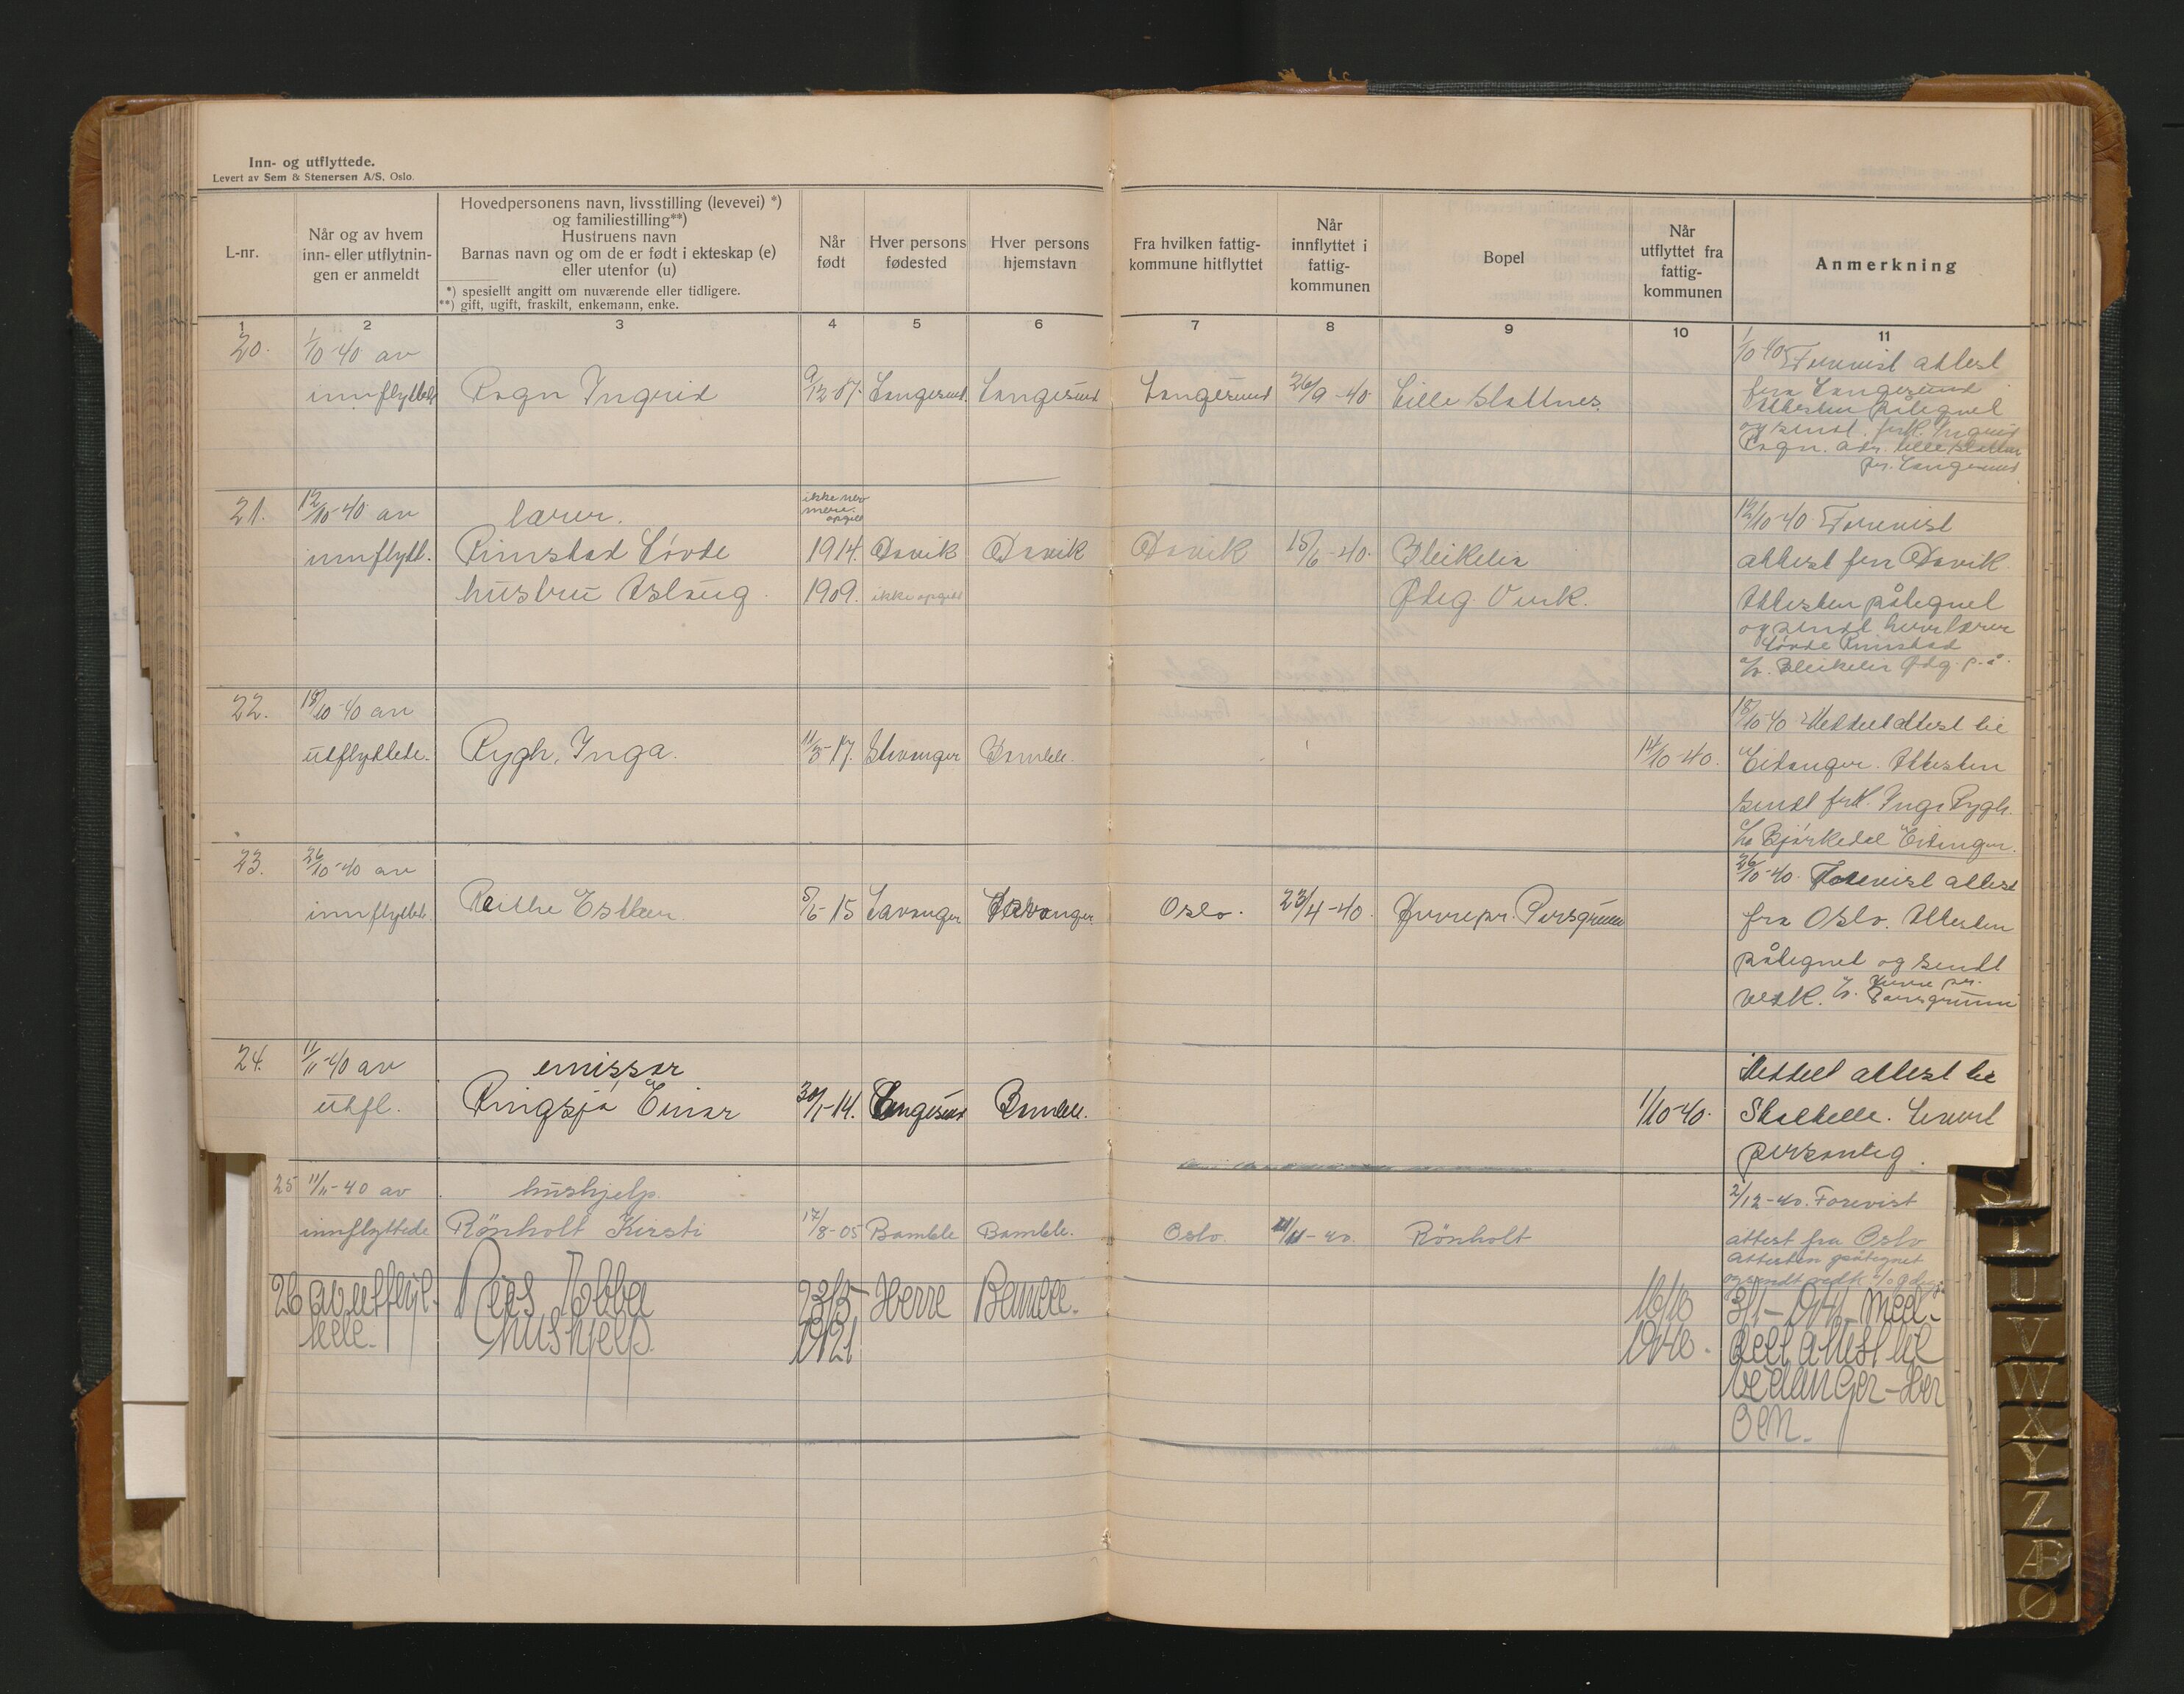 Inn- og utflyttede.
Levert av Sem & Stenersen A/S, Oslo.
L-nr.
Når og av hvem
inn- eller utflytnin-
gen er anmeldt
Hovedpersonens navn, livsstilling (levevei) *)
og familiestilling**)
Hustruens navn
Barnas navn og om de er født i ekteskap (e)
eller utenfor (u)
*) spesiellt angitt om nuværende eller tidligere.
**) gift, ugift, fraskilt, enkemann, enke.
Når
født
Hver persons
fødested
Hver persons
hjemstavn
Fra hvilken fattig-
kommune hitflyttet
Når
innflyttet i
fattig-
kommunen
Bopel
Når
utflyttet fra
fattig-
kommunen
Anmerkning
1 2 3 4 5 6 7 8 9 10 11
20. 1/10-40 av 1/10 40 Forevist attest
innflyttede Rogn Ingrid 9/12-07. Langesund. Langesund Langesund 26/9-40 Lille Slattnes. fra Langesund
Attesten påtegnet
og sendt frk. Ingrid
Rogn. adr. Lille Slattnes
pr. Langesund
21. 12/10-40 av lærer. ikke nær
mere
opgitt 12/10-40 Forevist
innflytt. Rimstad Løvde 1914. Davik Davik Davik 15/6-40. Bleikelia attest fra Davik.
hustru Aslaug. 1909. ikke opgitt Ødeg. Verk. Attesten påtegnet
og sendt herr lærer
Løvde Rimstad
Bleikelia Ødg. p.å.
22. 18/10-40 av 18/10-40 Meddelt attest til
utflyttede. Rygh, Inga. 11/3-17. Stavanger Bamble. 14/10-40. Eidanger. Attesten
sendt frk. Inga Rygh.
c/o Bjørkedal Eidanger.
23. 26/10-40 av 26/10-40. Forevist attest
innflyttede. Reithe Esther. 8/6-15 Lavanger Lavanger Oslo. 23/4-40. Herre pr. Porsgrunn fra Oslo. Attesten
påtegnet og sendt
vedk. Herre pr.
Porsgrunn
24. 11/11-40 av emissær Meddelt attest til
utfl. Ringsjø Einar 30/1-14. Langesund Bamble. 1/10-40. Skatbelle. Levert
personlig.
25 11/11-40 av hushjelp. 2/12-40. Forevist
innflyttede Rönholt Kirsti 17/8-05 Bamble Bamble. Oslo. 11/11-40. Rönholt attest fra Oslo
Attesten påtegnet
og sendt vedk.
26 av utflyt- Riis Ebba 23/5- Herre Bamble. 16/10 3/1-1941 Med-
tede. hushjelp. 1921 1940. delt attest til
Eidanger - Her
øen.
S
T
U
V
W
X
Y
Z
Æ
Ø